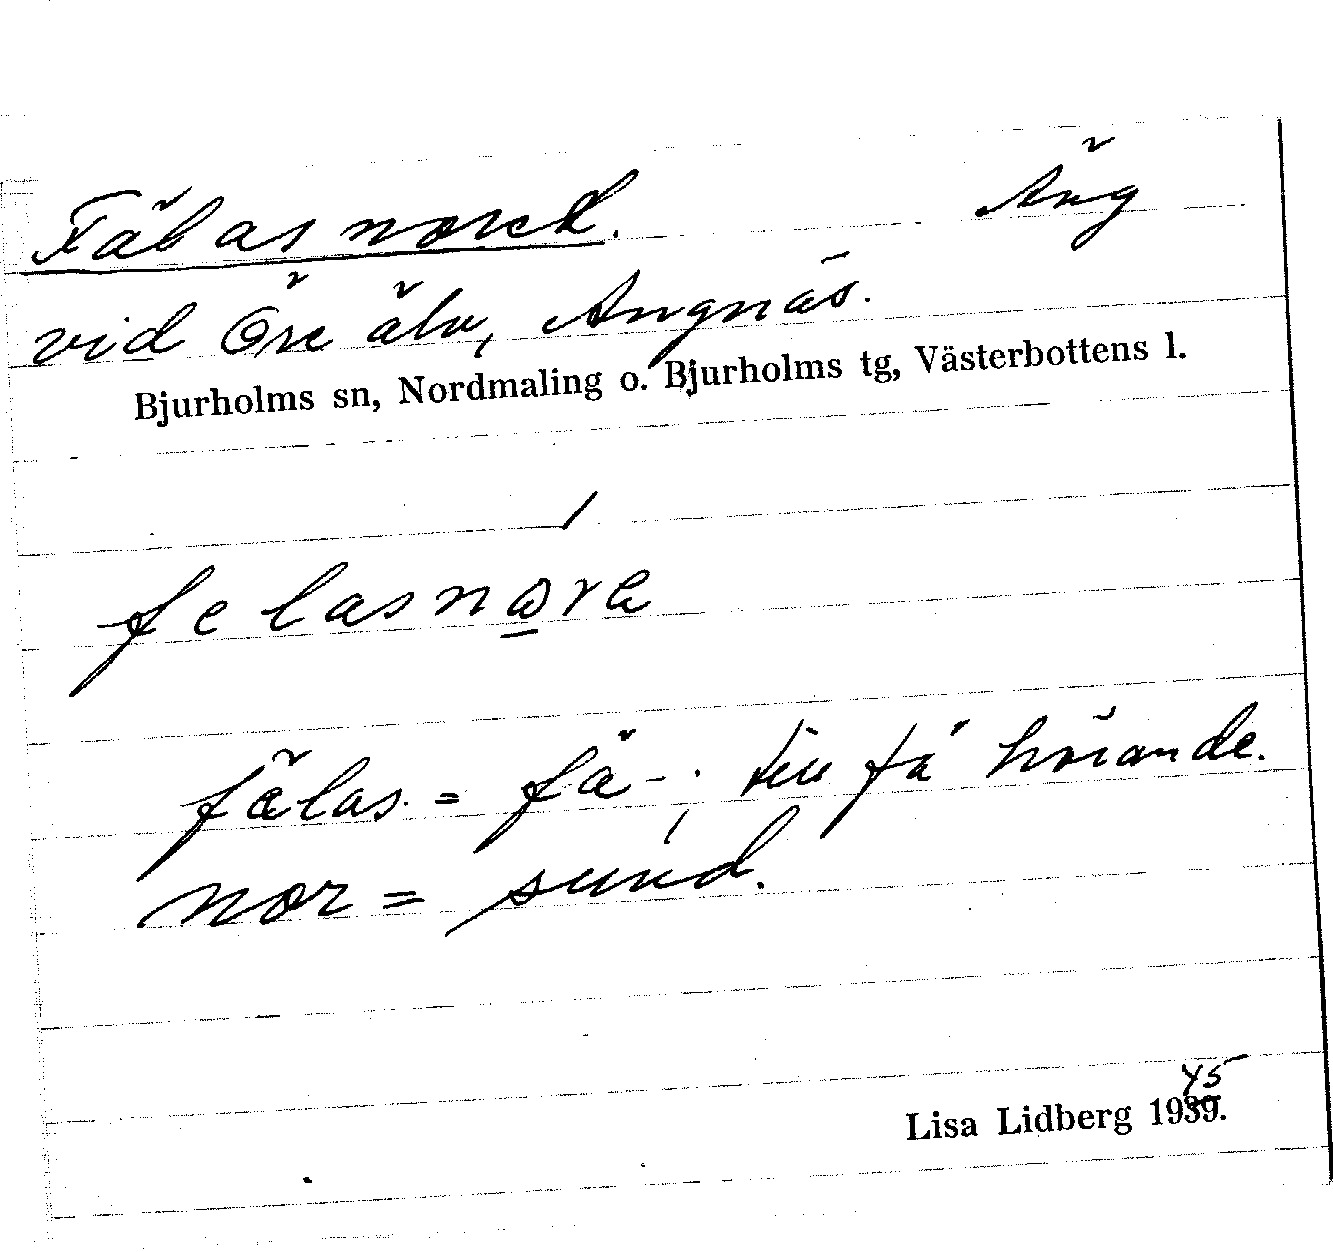 Fälasnoret. Äng
vid Öre älv, Angnäs.
Bjurholms sn, Nordmaling o. Bjurholms tg, Västerbottens l.
felasnơre
fälas = fä-; till fä hörande.
nor = sund.
Lisa Lidberg 1945.